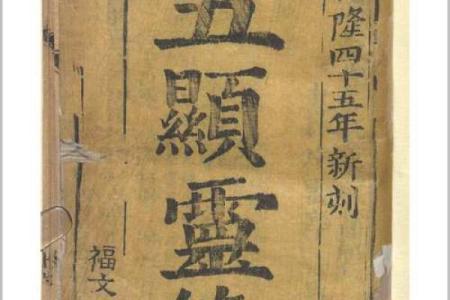 隆四十五年新刻
五顯靈
福文